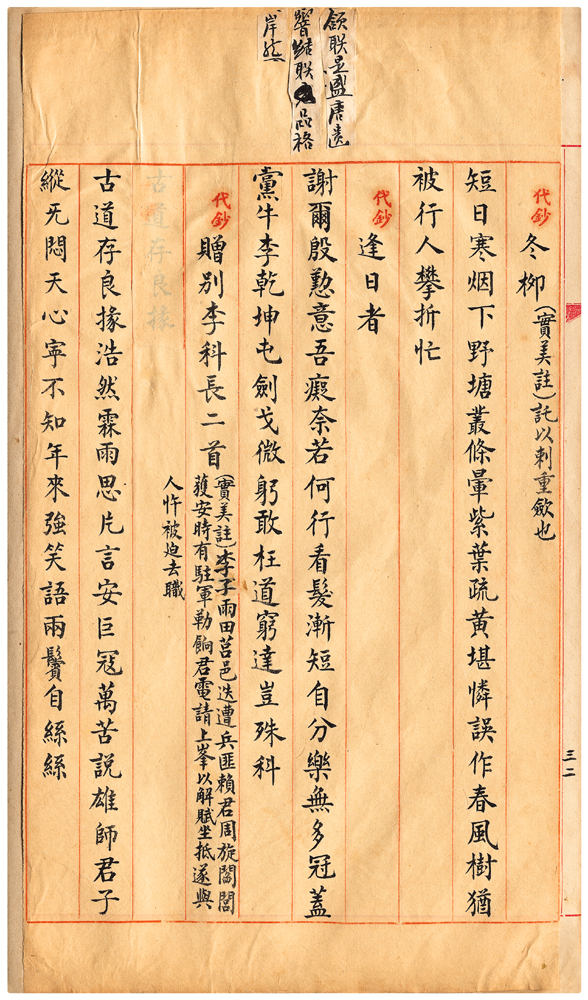 頷联是盛唐遺
響结联品格
岸然
代鈔
冬柳(實美註)託以刺重歛也
短日寒烟下野塘叢條暈紫葉疏黄堪憐誤作春風樹猶
被行人攀折忙
代鈔
逢日者
謝爾殷懃意吾癡奈若何行看髮漸短自分樂無多冠蓋
黨牛李乾坤屯劍戈微躬敢枉道窮達豈殊科
代鈔
贈別李科長二首
(實美註)李子雨田莒邑迭遭兵匪賴君周旋闔閭
獲安時有駐軍勒餉君電請上峯以解賦坐抵遂與
人忤被迫去職
古道存良掾
古道存良掾浩然霖雨思片言安巨冦萬苦説雄師君子
縱无悶天心寜不知年來強笑語兩鬢自絲絲
三二